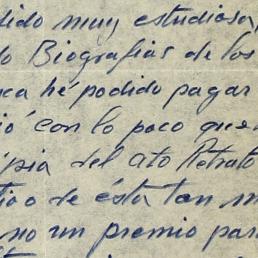 dido muy estudiosa
do Biografias de los
ca hé podido pagar
ió con lo poco que
pia del ato Retrato
tivo de ésta tan
no un premio par